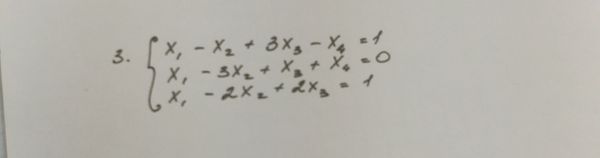 3. { x₁ - x₂ + 3x₃ - x₄ = 1
x₁ - 3x₂ + x₃ + x₄ = 0
x₁ - 2x₂ + 2x₃ = 1